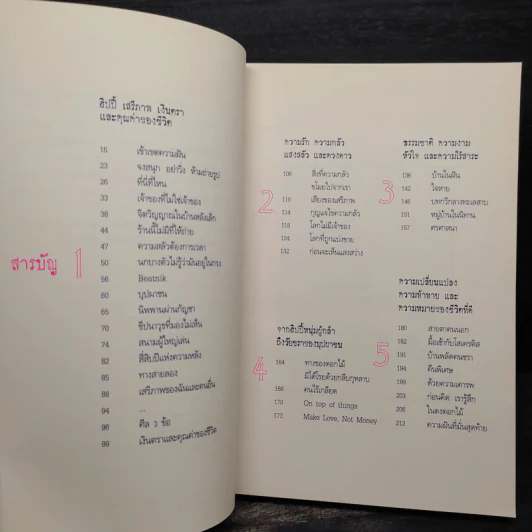 สารบัญ
1
ฮิปปี้ เสรีภาพ เงินตรา
และคุณค่าของชีวิต
16 เข้าเขตความฝัน
23 จงสนุก อย่าวิ่ง ห้ามถ่ายรูป
26 ที่นี่ที่ไหน
33 เจ้าของที่ไม่ใช่เจ้าของ
38 จิตวิญญาณในบ้านหลังเล็ก
44 ร้านนี้ไม่มีที่ให้ถ่าย
47 ความสลัวต้องการเวลา
50 นกบางตัวไม่รู้ว่ามันอยู่ในกรง
56 Bostnik
60 บุปผาชน
65 นิพพานผ่านกัญชา
70 ชีปนาวุธที่มองไม่เห็น
74 สนามผู้ใหญ่เล่น
82 สี่สิบปีแห่งความหลัง
85 ทางสายลอง
88 เสรีภาพของฉันและคนอื่น
94 ...
96 ศีล 3 ข้อ
99 เงินตราและคุณค่าของชีวิต
2
ความรัก ความกลัว
แสงสลัว และดวงดาว
106 สิ่งที่ความกลัว
ขโมยไปจากเรา
110 เสียงของเสรีภาพ
114 กุญแจไขความกลัว
118 โลกไม่มีเจ้าของ
124 โลกที่ถูกแบ่งขาย
132 ก่อนจะเห็นแสงสว่าง
3
ธรรมชาติ ความงาม
หัวใจ และความไร้สาระ
138 บ้านในฝัน
142 ใจหาย
148 บทกวีกลางทะเลสาบ
151 หมู่บ้านในนิทาน
157 ศรศาสนา
4
จากฮิปปี้หนุ่มผู้กล้า
ถึงวัยชราของบุปผาชน
164 ทางของดอกไม้
มิได้โรยด้วยกลีบกุหลาบ
168 คนไร้เกลียด
170 On top of things
173 Make Love, Not Money
5
ความเปลี่ยนแปลง
ความท้าทาย และ
ความหมายของชีวิตที่ดี
180 สายตาคนนอก
182 มื้อเช้ากับโสเครติส
191 บ้านพลัดคนชรา
194 คืนพิเศษ
199 ด้วยความเคารพ
203 ก่อนคิด เรารู้สึก
208 ในดงดอกไม้
212 ความฝันที่มั่นสุดท้าย